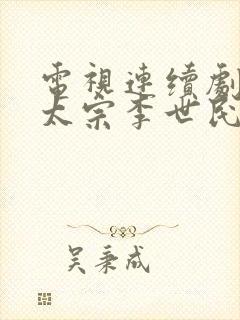 電視連續劇
太宗李世民
吴秉成